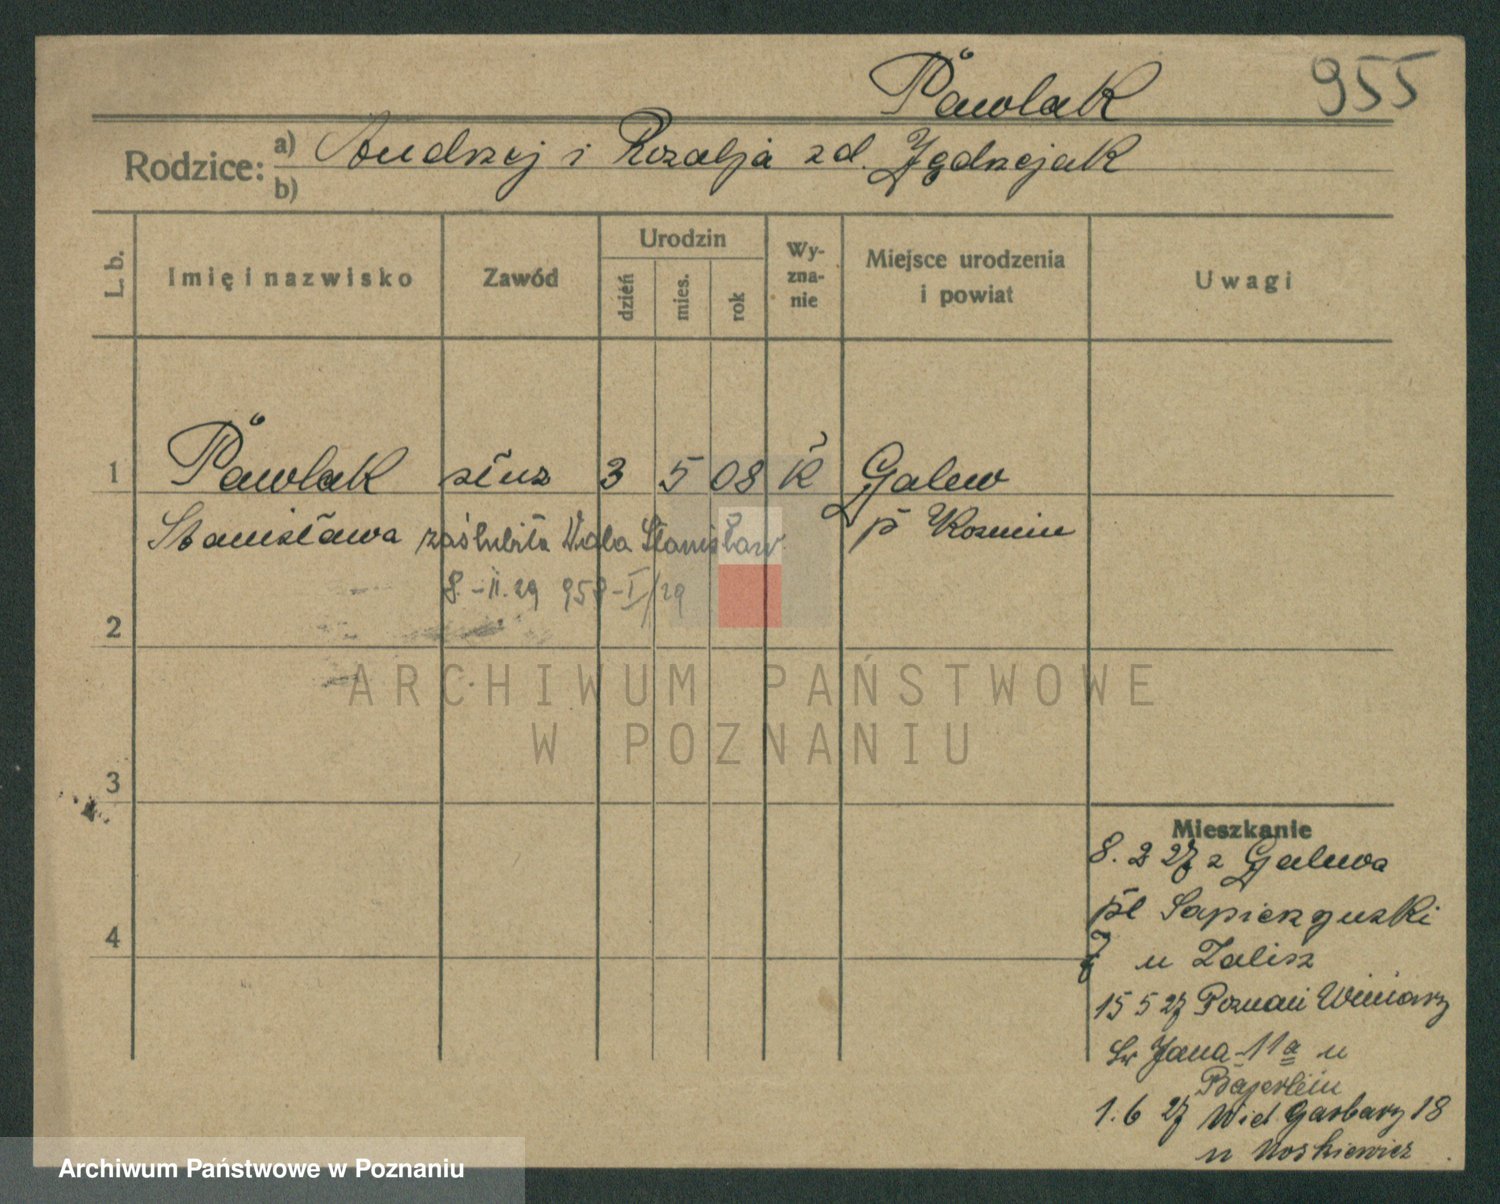 Pawlak
955
Rodzice:
a) Andrzej i Rozalja zd. Jędrzejak
b)
L. b.
Imię i nazwisko
Zawód
Urodzin
dzień
mies.
rok
Wy-
zna-
nie
Miejsce urodzenia
i powiat
Uwagi
1
Pawlak służ 3 5 08 K Galew
Stanisława zaślubiła Stanisław p Kozmin
8.-II.29 958-I/29
2
ARCHIWUM PAŃSTWOWE
W POZNANIU
3
4
Mieszkanie
8. 2 27 z Galewa
pl Sapierzyuski
7 u Zalisz
15 5 27 Poznań Winiary
św Jana 11a u
Bajerlein
1.6 27 Wiel. Garbary 18
u Noskiewicz
Archiwum Państwowe w Poznaniu